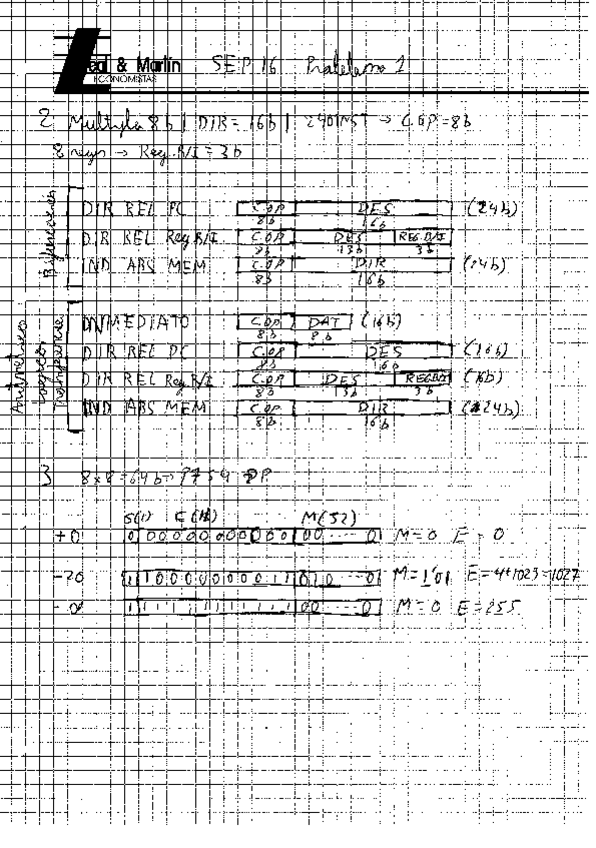 Leal & Marlín SEP 16 Problema 1
ECONOMISTAS
2 Multiplo 8b | DIR = 16b | 240 INST → C.OP = 8b
8 regs → Reg. B/I = 3b
Bifurcaciones
DIR REL PC C.OP DES (24b)
8b 16b
DIR REL Reg B/I C.OP DES REG.B/I
8b 13b 3b
IND ABS MEM C.OP DIR (24b)
8b 16b
Aritmético
Lógico
Transferencia
INMEDIATO C.OP DAT (16b)
8b 8b
DIR REL PC C.OP DES (16b)
8b 16b
DIR REL Reg B/I C.OP DES REG.B/I (16b)
8b 13b 3b
IND ABS MEM C.OP DIR (24b)
8b 16b
3 8x8=64b → P754 DP
S(1) E(11) M(52)
+0 0 00000000000 00 ---- 0 M=0 E=0
-20 1 10000000011 010 --- 0 M=1'01 E=4+1023=1027
-∞ 1 11111111111 00 --- 0 M=0 E=255